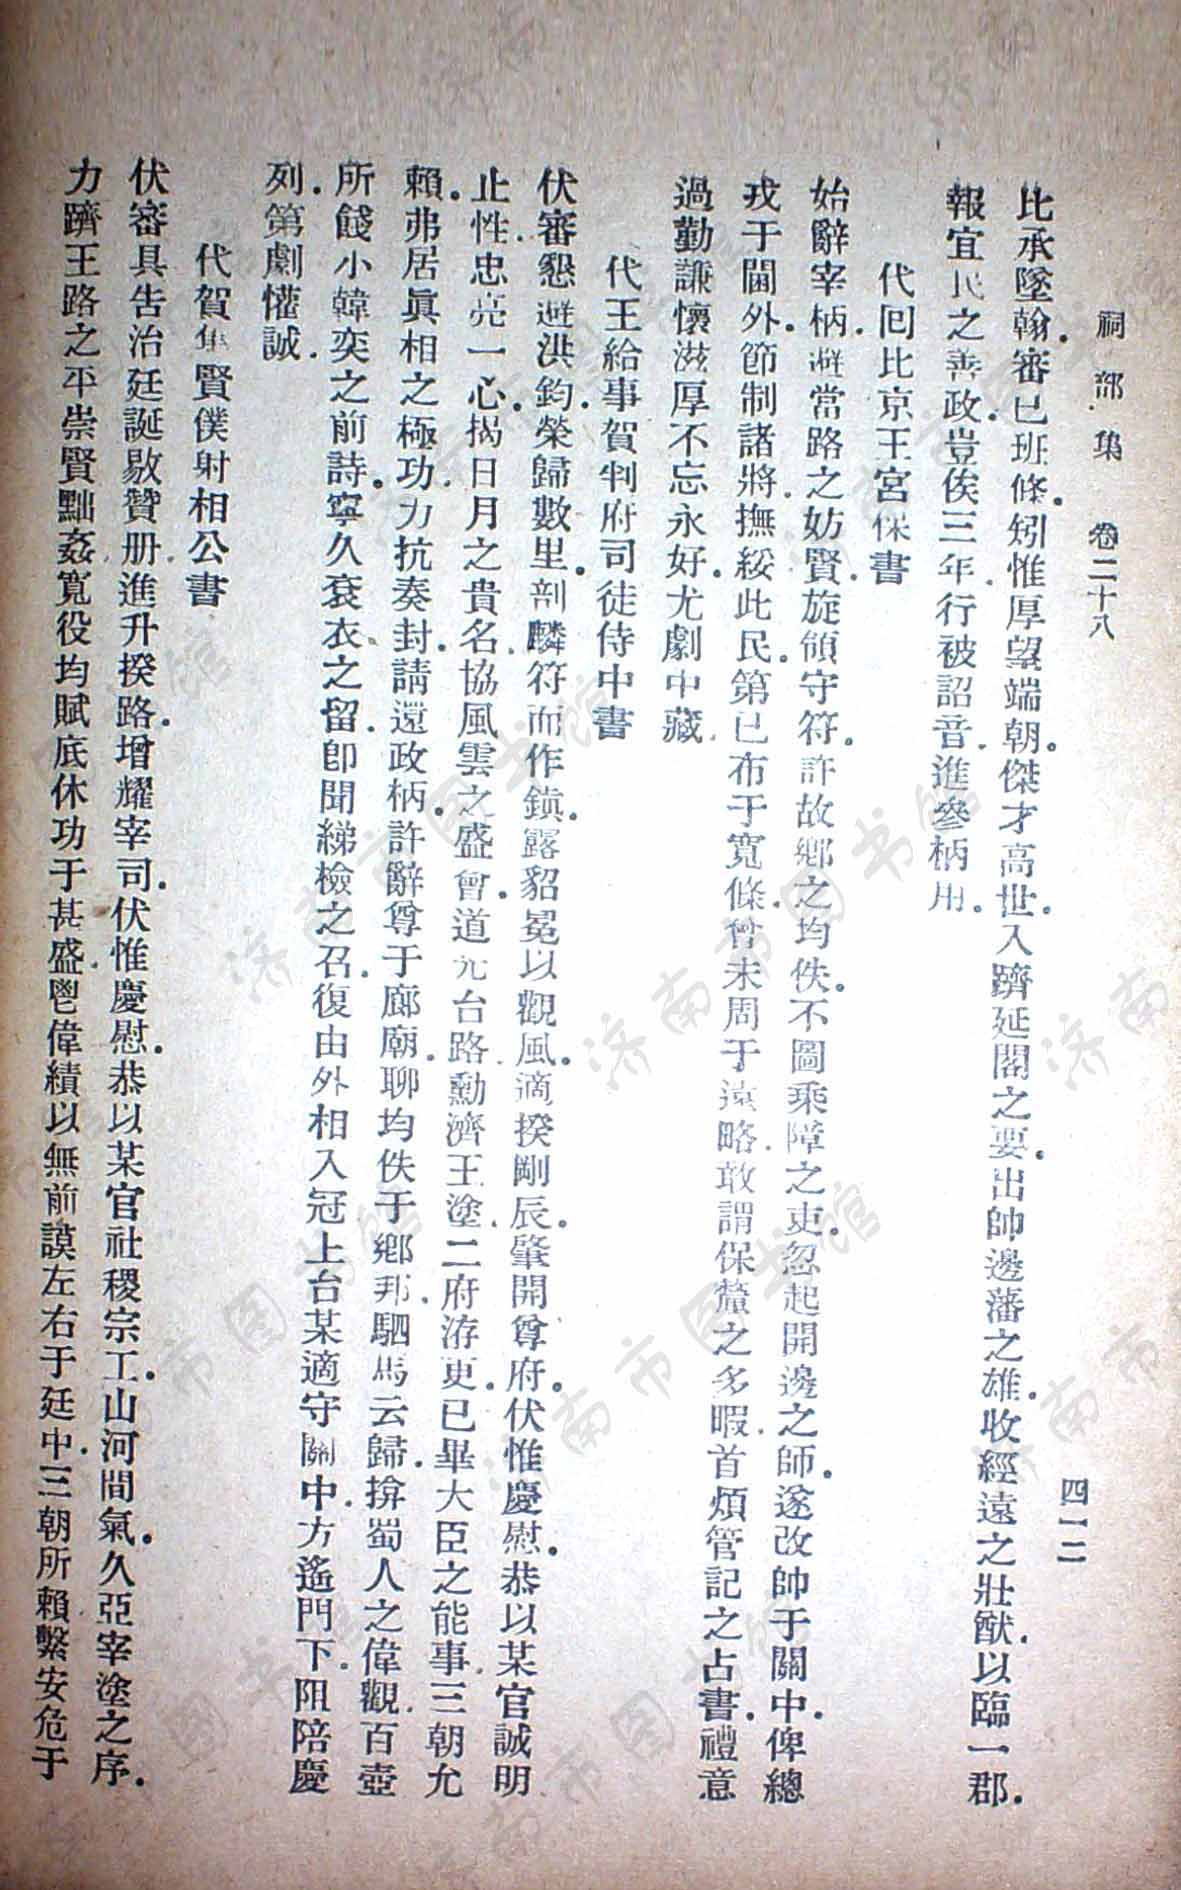 祠部集 卷二十八 四一二
比承墜翰.審已班條.矧惟厚望端朝.傑才高世.入躋延閣之要.出帥邊藩之雄.收經遠之壯猷.以臨一郡.
報宜民之善政.豈俟三年.行被詔音.進參柄用.
代回比京王宮保書
始辭宰柄.避當路之妨賢.旋領守符.許故鄉之均佚.不圖乘障之吏.忽起開邊之師.遂改帥于關中.俾總
戎于閫外.節制諸將.撫綏此民.第已布于寬條.曾未周于遠略.敢謂保釐之多暇.首煩管記之占書.禮意
過勤.謙懷滋厚.不忘永好.尤劇中藏.
代王給事賀判府司徒侍中書
伏審懇避洪鈞.榮歸數里.剖麟符而作鎮.露貂冕以觀風.適揆剛辰.肇開尊府.伏惟慶慰.恭以某官誠明
止性.忠亮一心.揭日月之貴名.協風雲之盛會.道光台路.勳濟王塗.二府洊更.已畢大臣之能事.三朝允
賴.弗居眞相之極功.力抗奏封.請還政柄.許辭尊于廊廟.聊均佚于鄉邦.駟馬云歸.揜蜀人之偉觀.百壺
所餞.小韓奕之前詩.寧久袞衣之留.卽聞綈檢之召.復由外相.入冠上台.某適守關中.方遙門下.阻陪慶
列.第劇懽誠.
代賀集賢僕射相公書
伏審具告治廷.誕敭贊册.進升揆路.增耀宰司.伏惟慶慰.恭以某官社稷宗工.山河間氣.久亞宰塗之序.
力躋王路之平.崇賢黜姦.寬役均賦.底休功于甚盛.鬯偉績以無前.謨左右于廷中.三朝所賴.繫安危于